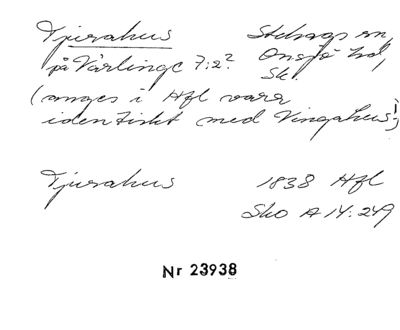 Tjurahus Stehags sn,
på Värlinge 7:2? Onsjö hd,
Sk.
(anges i Hfl vara
identiskt med Vingahus!)
Tjurahus 1838 Hfl
Sko A 14:249
Nr 23938